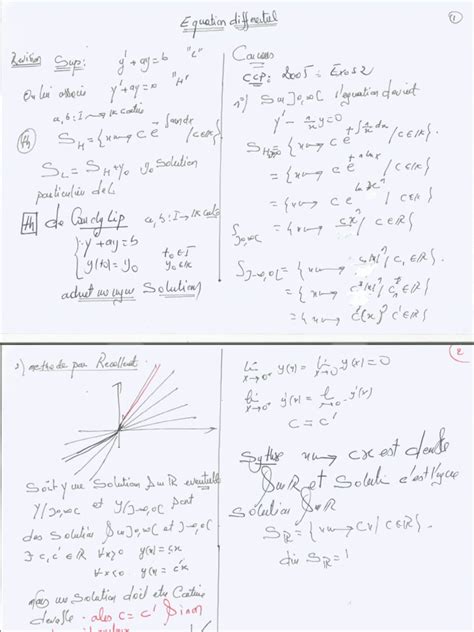 Equation differentiel
1
Revision Sup: y' + ay = b "L"
On lui associe y' + ay = 0 "H"
a, b : I → IK continues
Th
S_H = {x ↦ C e^{-∫a(x)dx} / C ∈ IK}
S_L = S_H + y_0 solution
particulière de L
Th de Cauchy Lip a, b : I → IK
{ y' + ay = b
y(t_0) = y_0 t_0 ∈ I y_0 ∈ K
admet une unique Solution
CCP: 2005: Exos 2
1°) Sur ]0, ∞[ l'equation devient
y' - n/x y = 0
S_H = {x ↦ C e^{+∫n/x dx} / C ∈ IR}
= {x ↦ C e^{+n ln x} / C ∈ IR}
= {x ↦ C e^{ln x^n} / C ∈ IR}
S_{]0,∞[} = {x ↦ C x^n / C ∈ IR}
S_{]-∞,0[} = {x ↦ C|x|^n / C ∈ IR}
= {x ↦ C'(x)^n C' ∈ IR}
2) methode par Recollement
Soit y une Solution sur IR eventuelle
y/]0,∞[ et y/]-∞,0[ sont
des Solution sur ]0,∞[ et ]-∞,0[
∃ c, c' ∈ IR ∀x>0 y(x) = cx
∀x<0 y(x) = c'x
mais une solution doit etre Continue
derivable . alors c = c' Sinon
2
lim x→0+ y(x) = lim x→0- y(x) = 0
lim x→0+ y'(x) = lim x→0- y'(x)
C = C'
x ↦ cx est derivable
Sur IR et Solution c'est l'unique
Solution Sur IR
S_IR = {x ↦ Cx / C ∈ IR}.
dim S_IR = 1